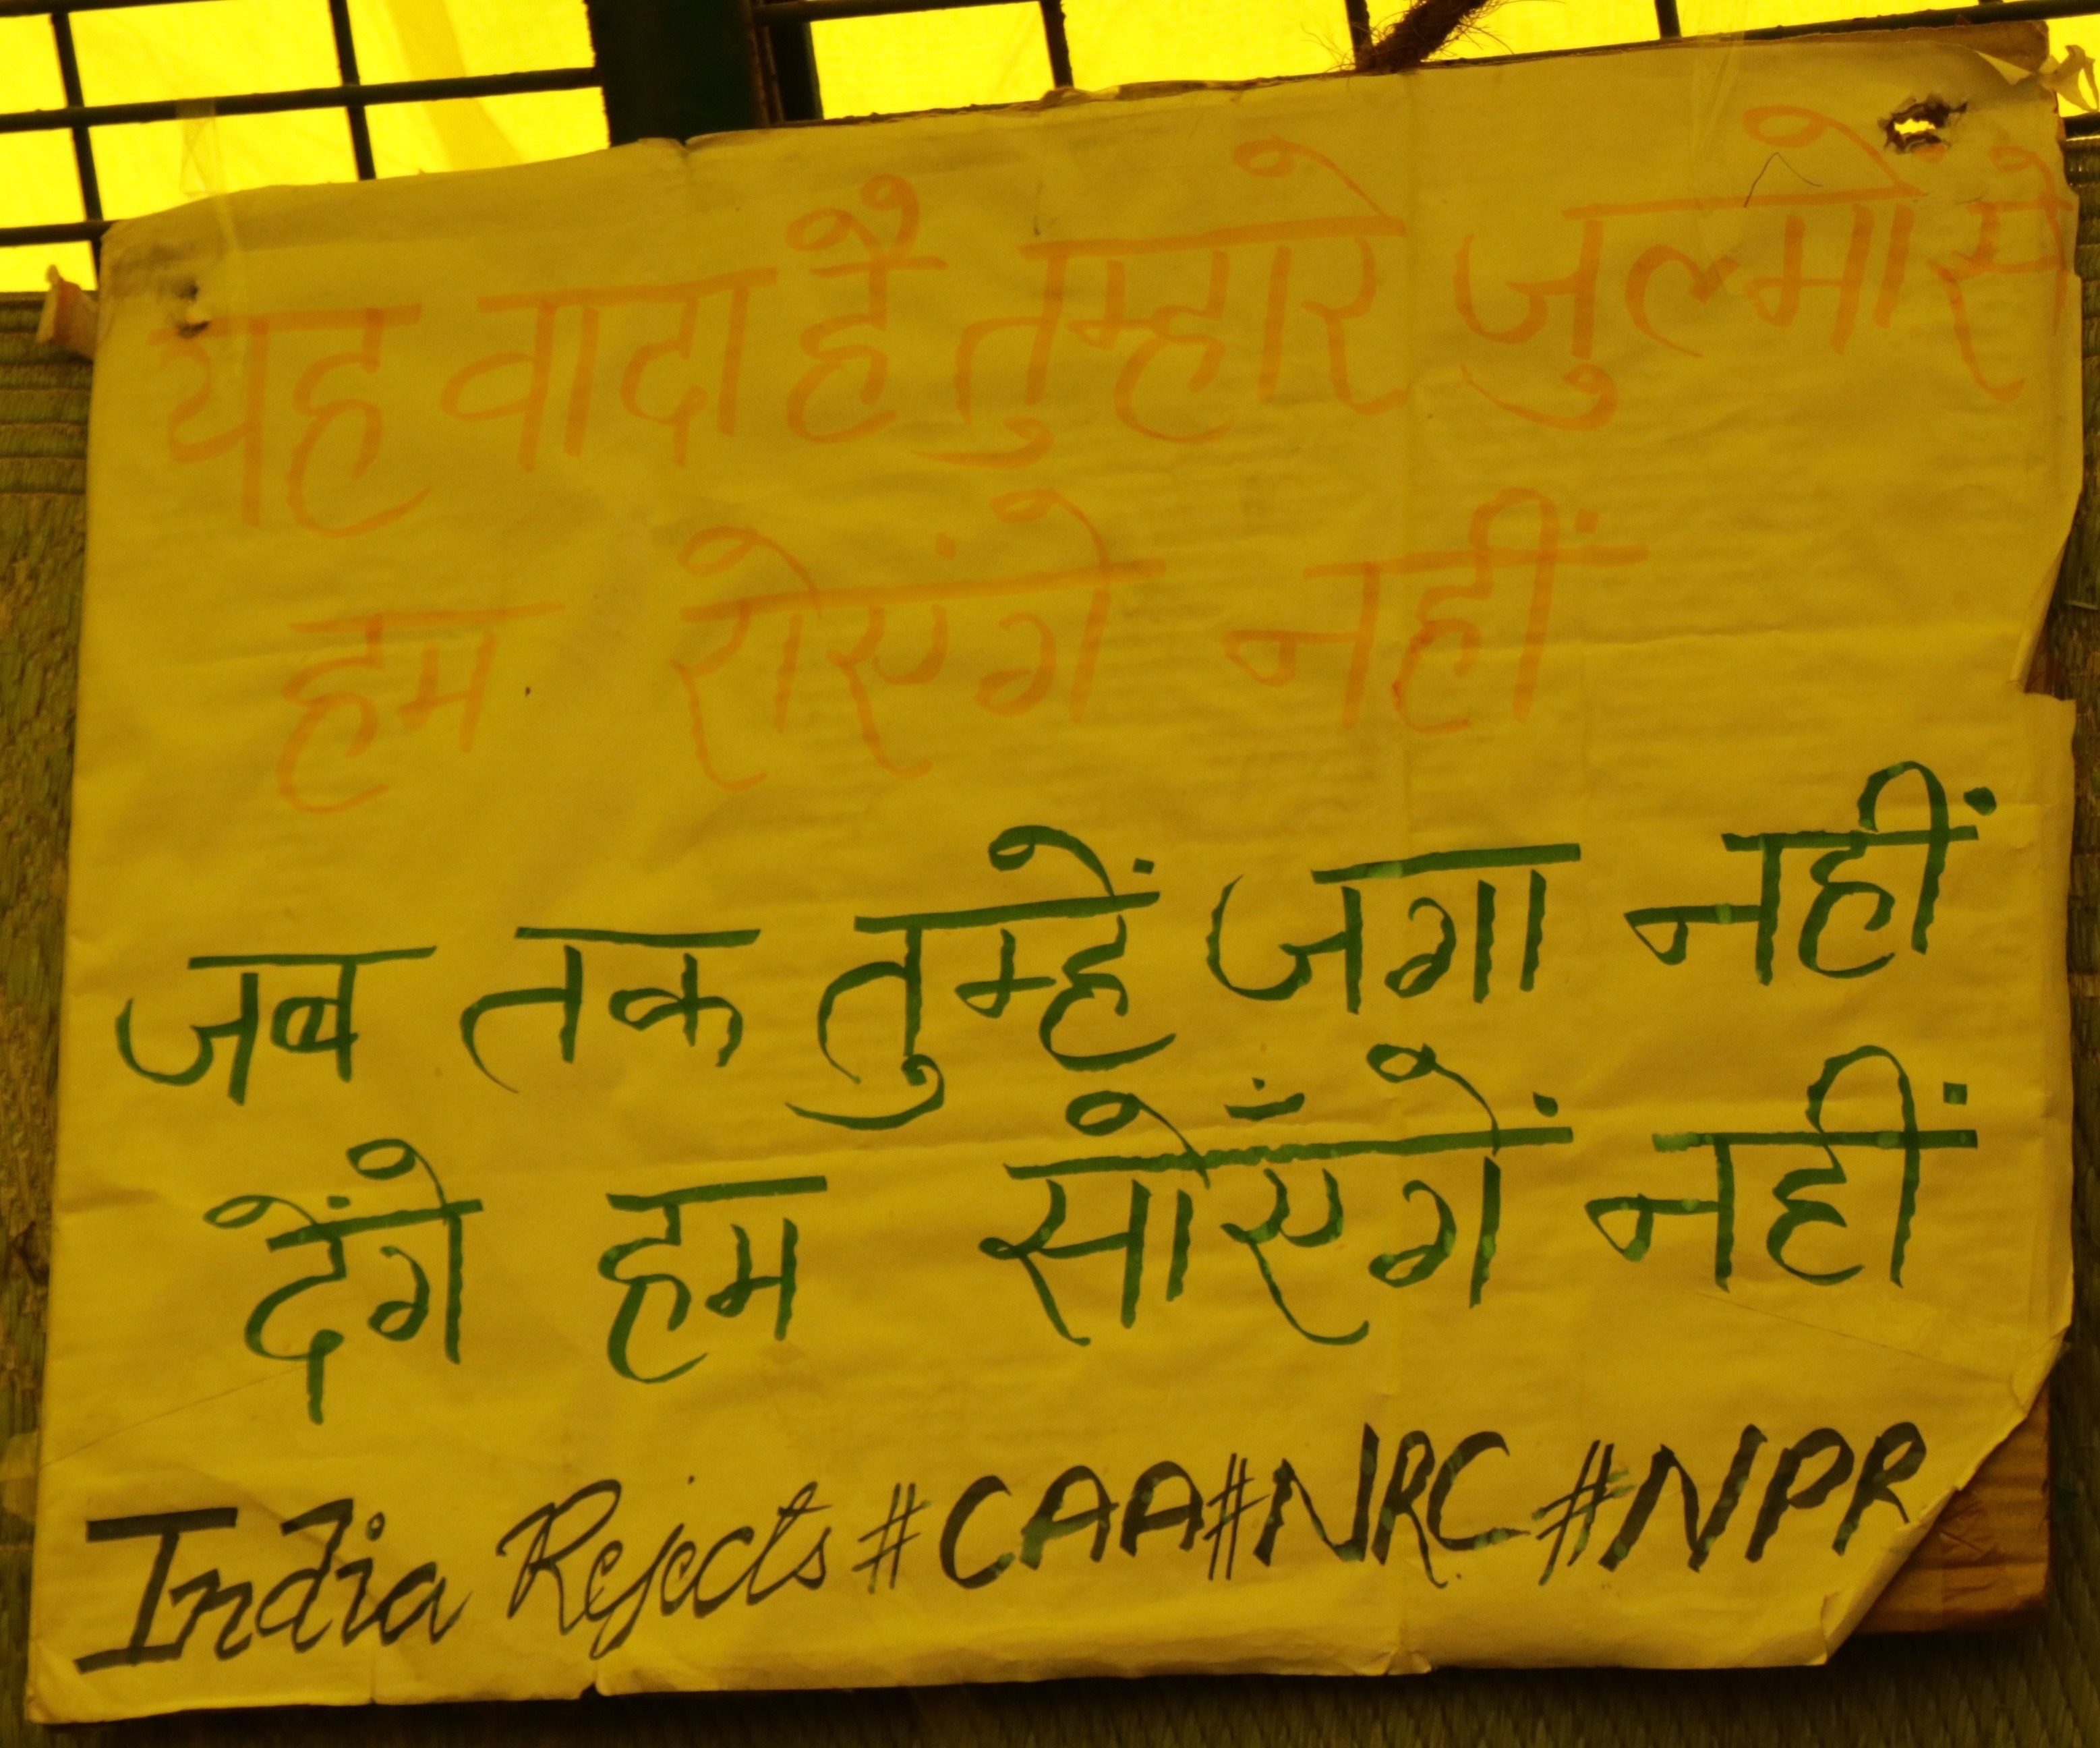 यह वादा है तुम्हारे जुल्मो से
हम रोएंगे नहीं
जब तक तुम्हें जगा नहीं
देंगे हम सोएंगें नहीं
India Rejects #CAA#NRC #NPR